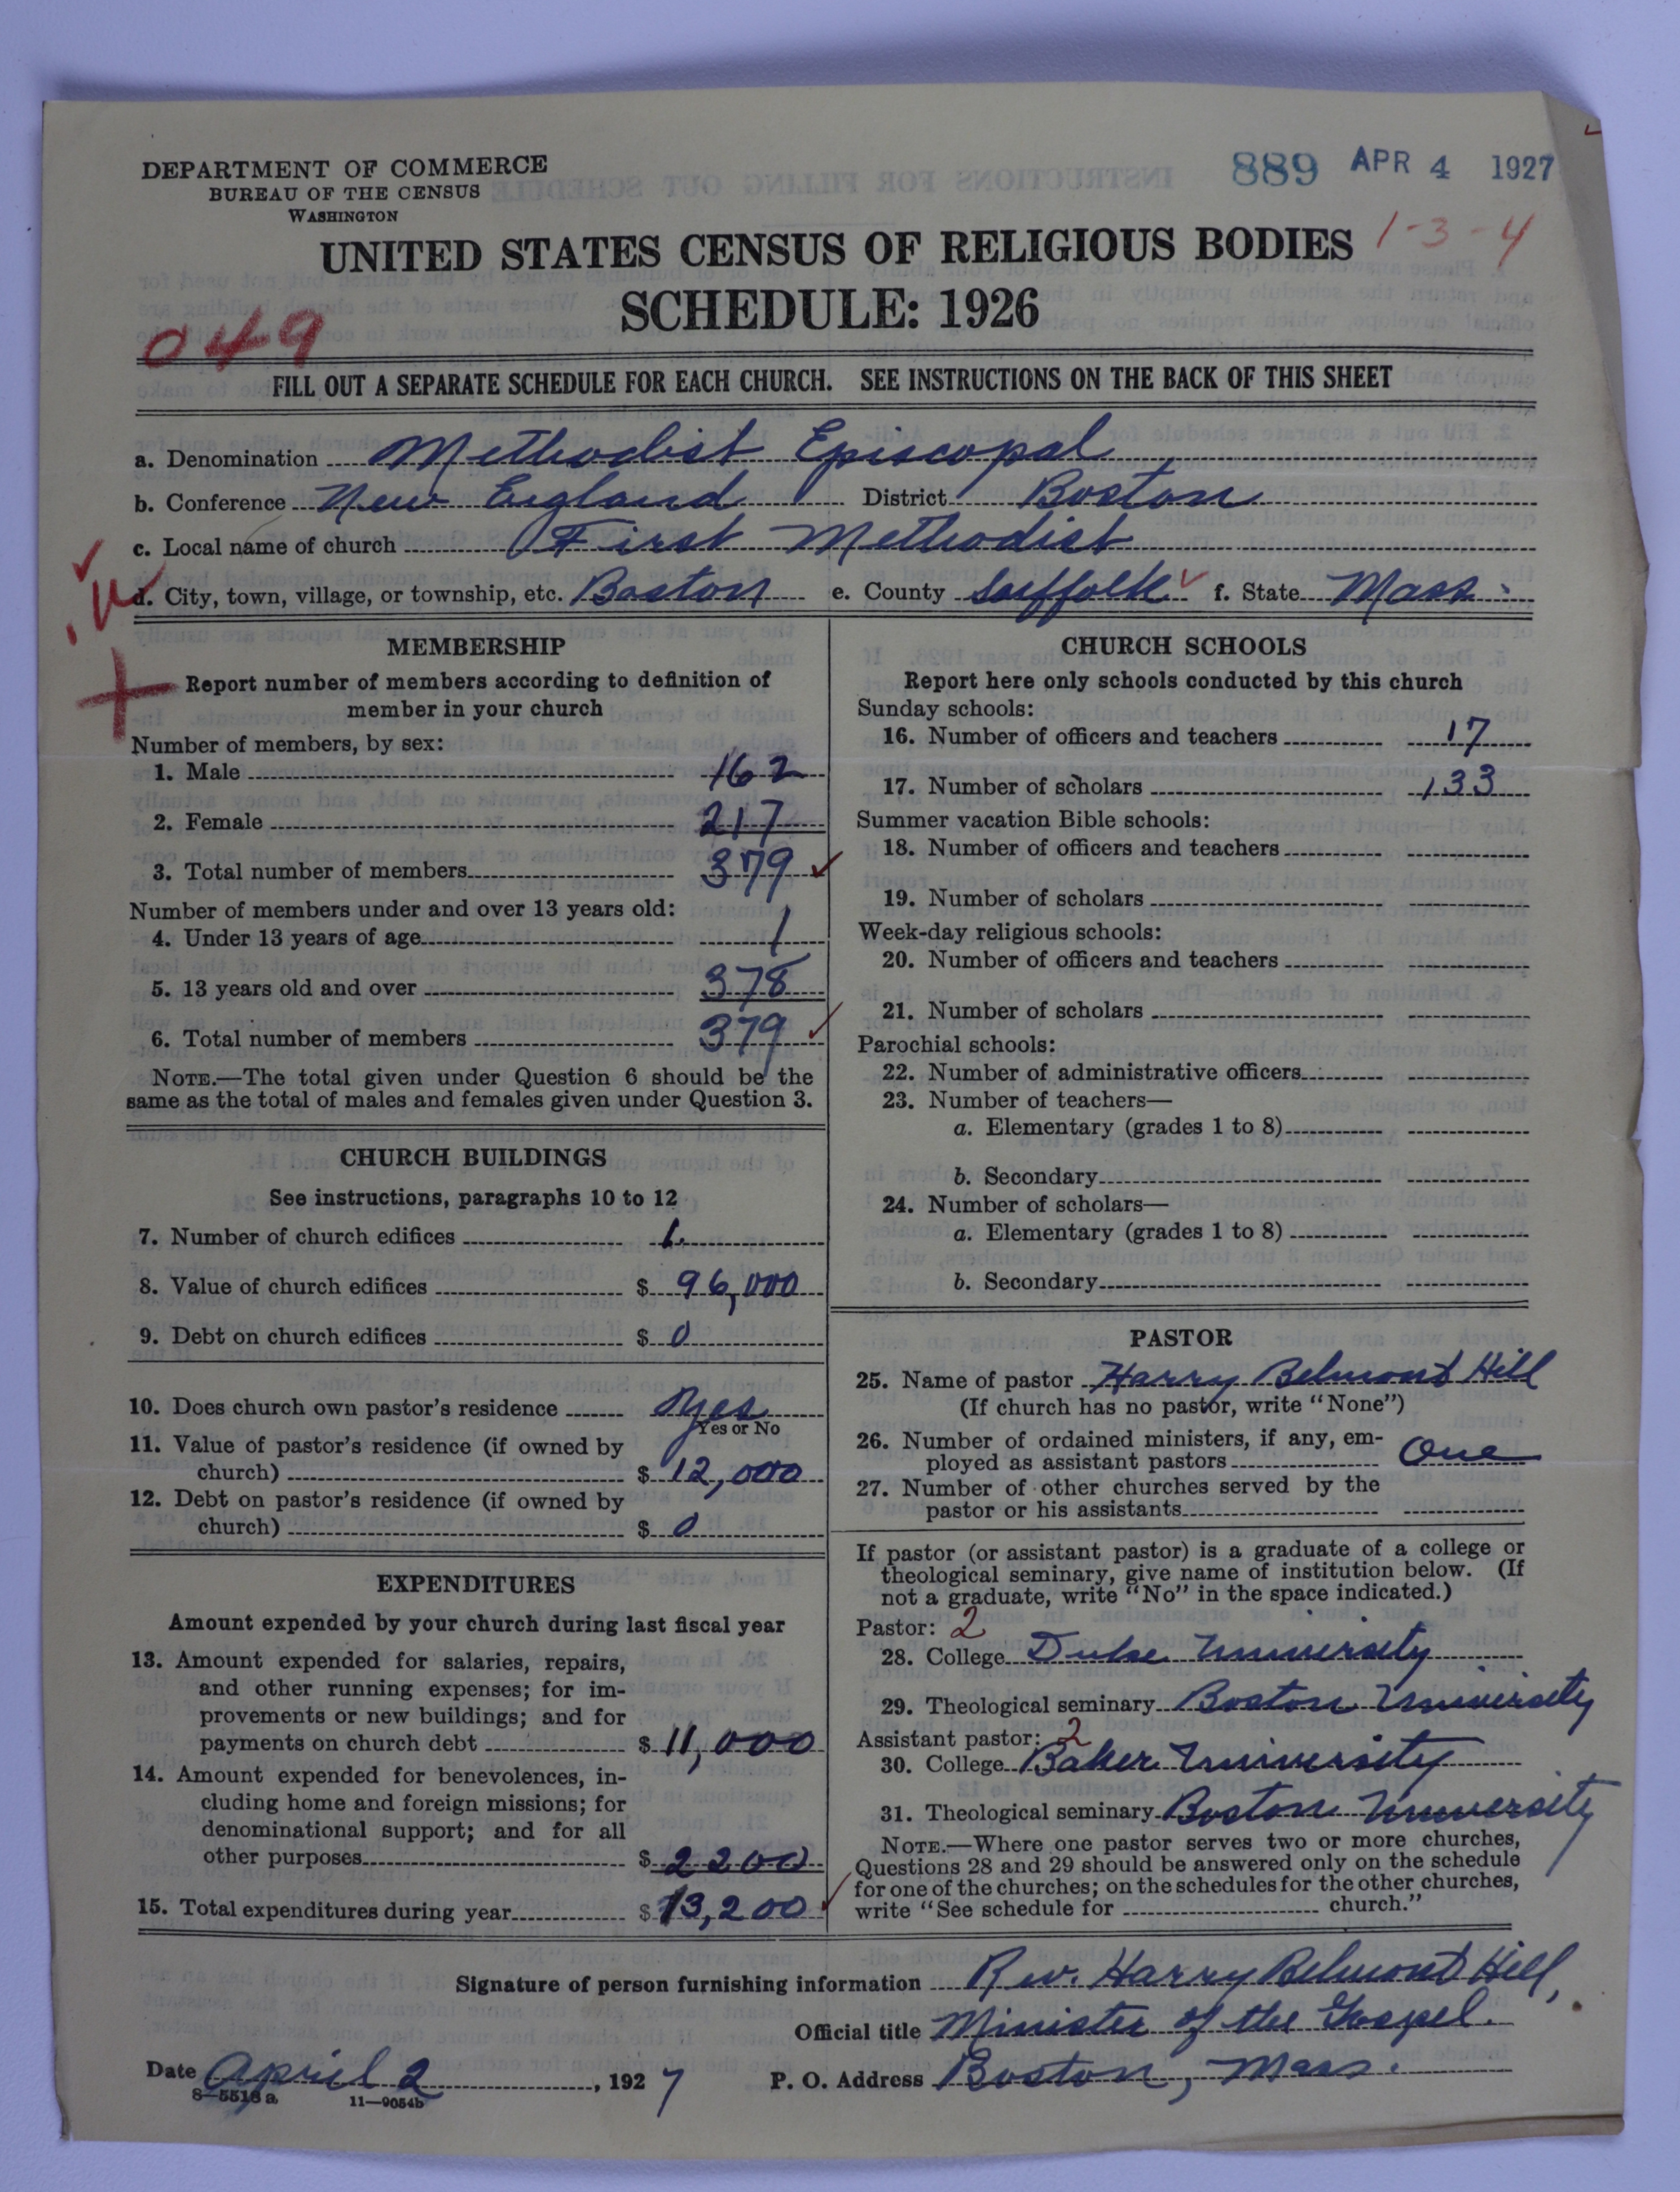 DEPARTMENT OF COMMERCE
BUREAU OF THE CENSUS
WASHINGTON
889 APR 4 1927
UNITED STATES CENSUS OF RELIGIOUS BODIES
1-3-4
SCHEDULE: 1926
049
FILL OUT A SEPARATE SCHEDULE FOR EACH CHURCH. SEE INSTRUCTIONS ON THE BACK OF THIS SHEET
a. Denomination Methodist Episcopal
b. Conference New England District Boston
c. Local name of church First Methodist
d. City, town, village, or township, etc. Boston e. County Suffolk f. State Mass.
MEMBERSHIP
Report number of members according to definition of
member in your church
Number of members, by sex:
1. Male 162
2. Female 217
3. Total number of members 379
Number of members under and over 13 years old:
4. Under 13 years of age 1
5. 13 years old and over 378
6. Total number of members 379
NOTE.—The total given under Question 6 should be the
same as the total of males and females given under Question 3.
CHURCH BUILDINGS
See instructions, paragraphs 10 to 12
7. Number of church edifices 1
8. Value of church edifices $ 96,000
9. Debt on church edifices $ 0
10. Does church own pastor's residence Yes
Yes or No
11. Value of pastor's residence (if owned by
church) $ 12,000
12. Debt on pastor's residence (if owned by
church) $ 0
EXPENDITURES
Amount expended by your church during last fiscal year
13. Amount expended for salaries, repairs,
and other running expenses; for im-
provements or new buildings; and for
payments on church debt $ 11,000
14. Amount expended for benevolences, in-
cluding home and foreign missions; for
denominational support; and for all
other purposes $ 2200
15. Total expenditures during year $ 13,200
CHURCH SCHOOLS
Report here only schools conducted by this church
Sunday schools:
16. Number of officers and teachers 17
17. Number of scholars 133
Summer vacation Bible schools:
18. Number of officers and teachers
19. Number of scholars
Week-day religious schools:
20. Number of officers and teachers
21. Number of scholars
Parochial schools:
22. Number of administrative officers
23. Number of teachers—
a. Elementary (grades 1 to 8)
b. Secondary
24. Number of scholars—
a. Elementary (grades 1 to 8)
b. Secondary
PASTOR
25. Name of pastor Harry Belmont Hill
(If church has no pastor, write "None")
26. Number of ordained ministers, if any, em-
ployed as assistant pastors One
27. Number of other churches served by the
pastor or his assistants
If pastor (or assistant pastor) is a graduate of a college or
theological seminary, give name of institution below. (If
not a graduate, write "No" in the space indicated.)
Pastor: 2
28. College Duke University
29. Theological seminary Boston University
Assistant pastor: 2
30. College Baker University
31. Theological seminary Boston University
NOTE.—Where one pastor serves two or more churches,
Questions 28 and 29 should be answered only on the schedule
for one of the churches; on the schedules for the other churches,
write "See schedule for church."
Signature of person furnishing information Rev. Harry Belmont Hill,
Official title Minister of the Gospel.
Date April 2, 1927 P. O. Address Boston, Mass.
8—5518a 11—9054b